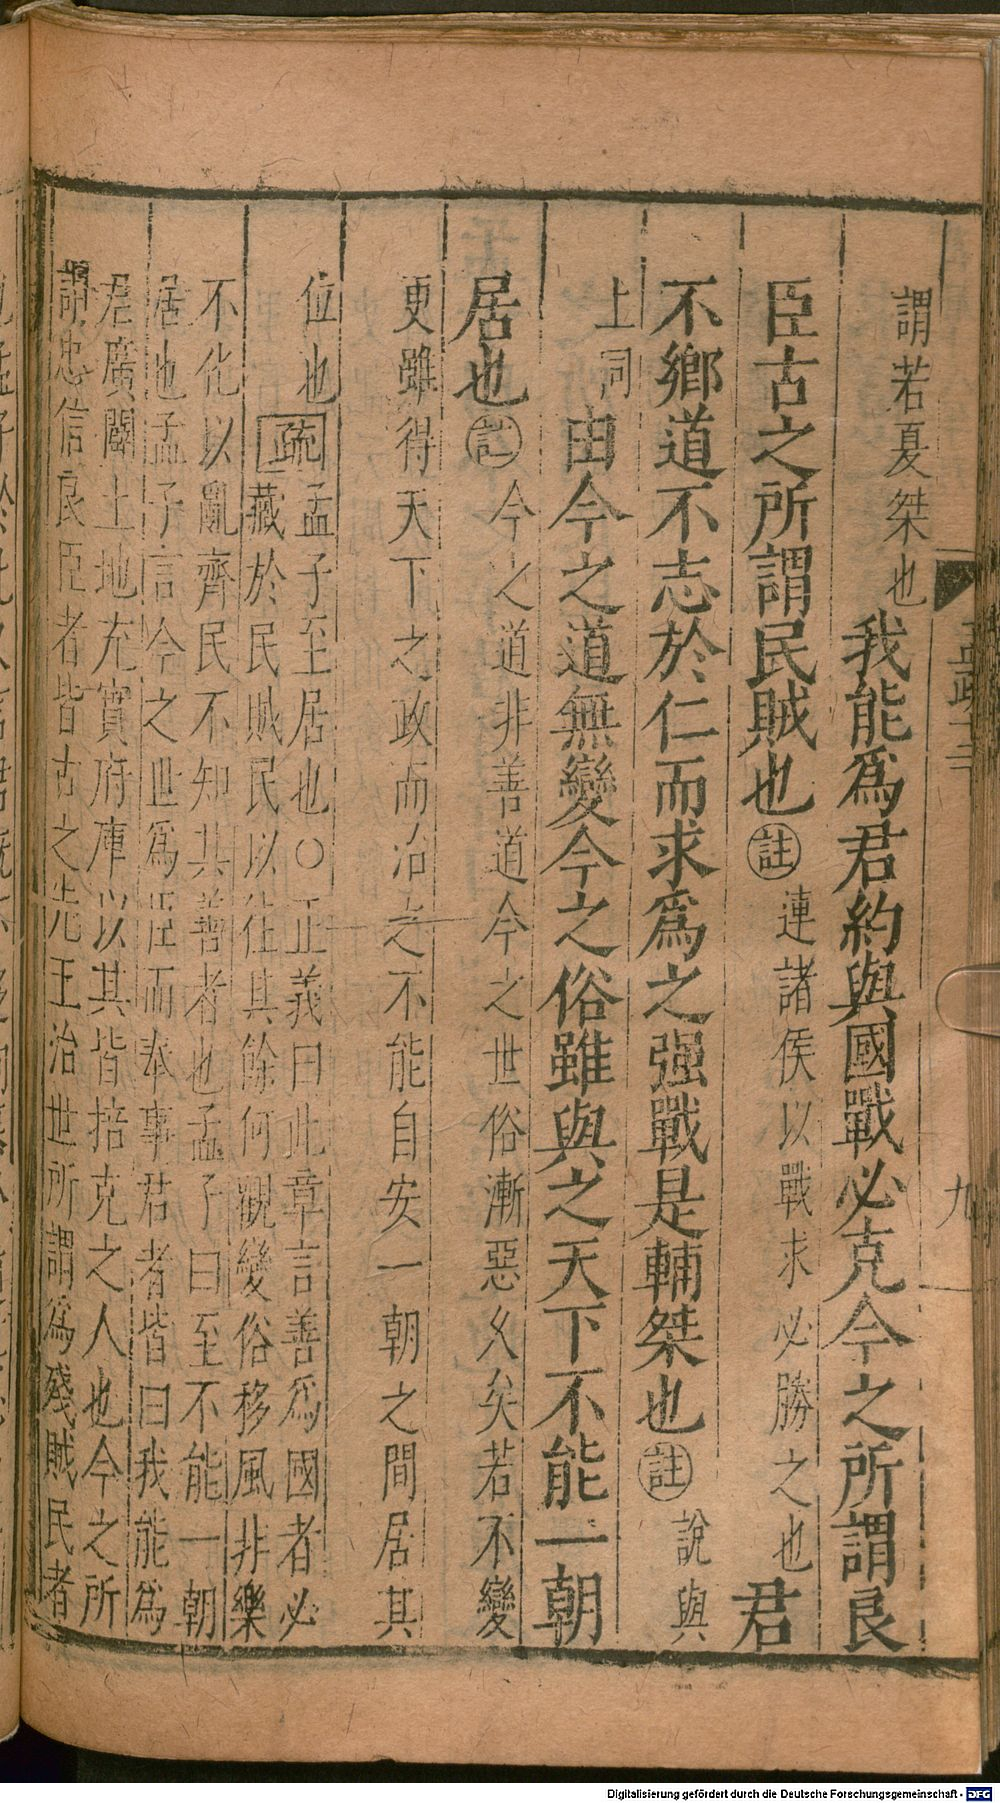 謂若夏桀也我能爲君約與國戰必克今之所謂良
臣古之所謂民賊也註連諸侯以戰求必勝之也君
不鄉道不志於仁而求爲之强戰是輔桀也註說與
上同由今之道無變今之俗雖與之天下不能一朝
居也註今之道非善道今之世俗漸惡久矣若不變
更雖得天下之政而治之不能自安一朝之間居其
位也疏孟子至居也○正義曰此章言善爲國者必
藏於民賊民以往其餘何觀變俗移風非樂
不化以亂齊民不知其善者也孟子曰至不能一朝
居也孟子言今之世爲臣而奉事君者皆曰我能爲
君廣闢土地充實府庫以其皆掊克之人也今之所
謂忠信良臣者皆古之先王治世所謂爲殘賊民者
孟疏十二
九
Digitalisierung gefördert durch die Deutsche Forschungsgemeinschaft - DFG